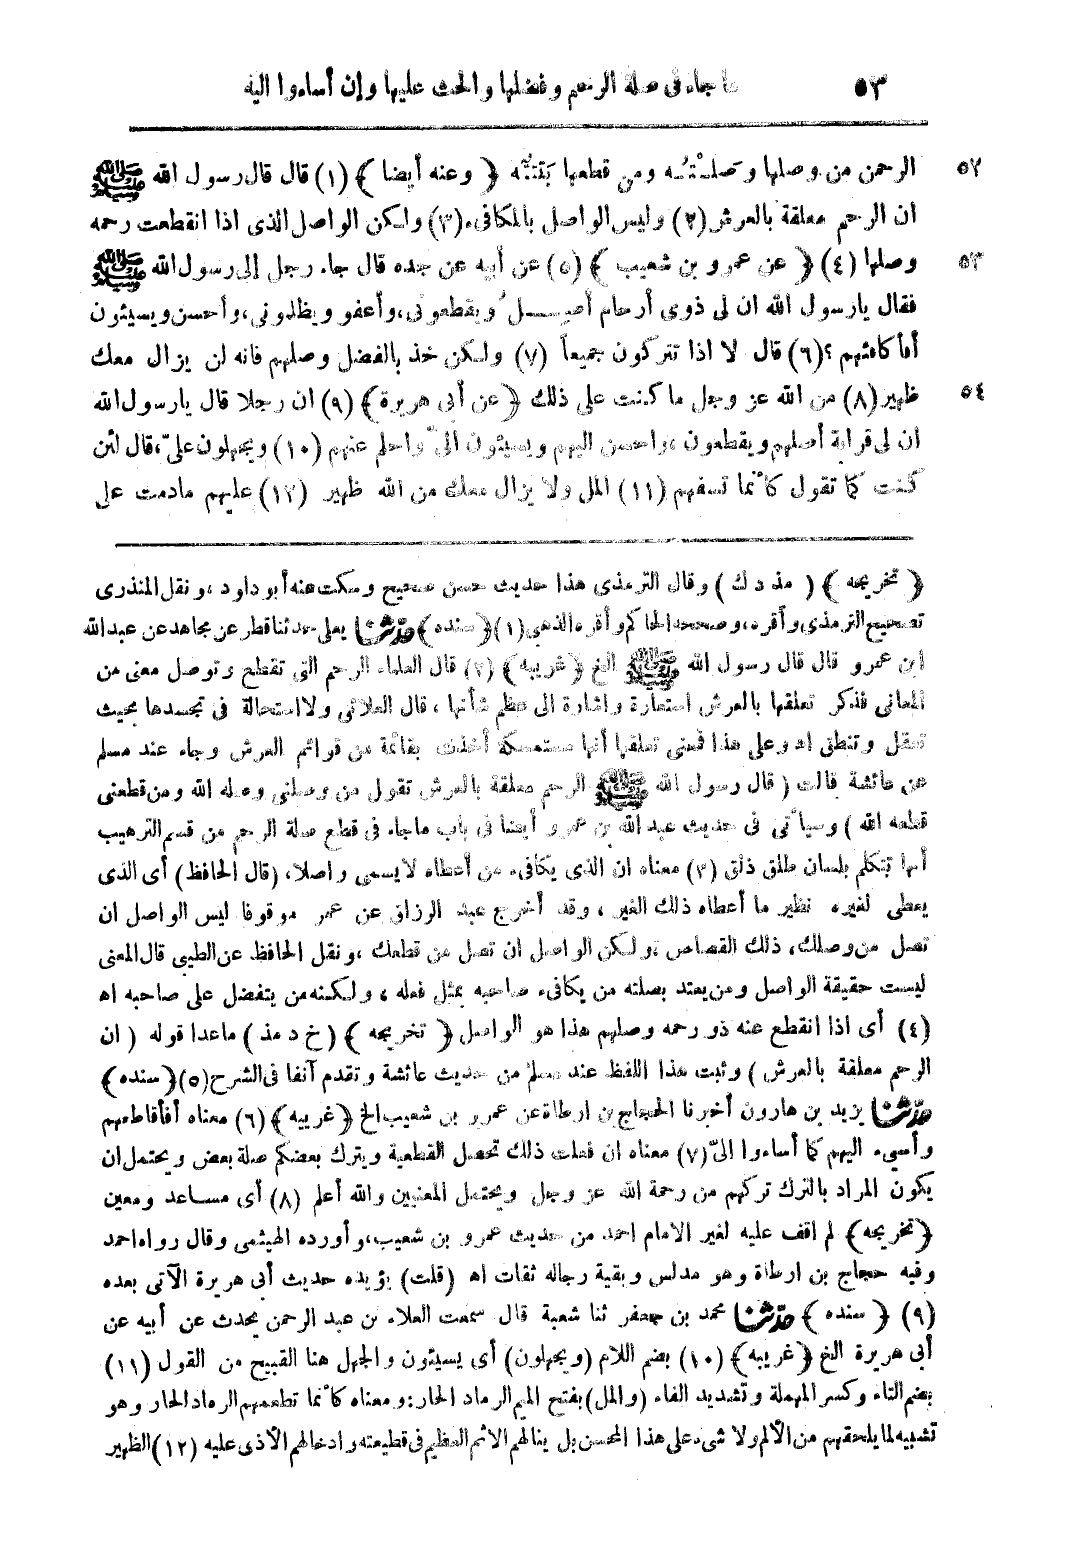 ٥٣ ما جاء فى صلة الرحم وفضلها والحث عليها وإن أساءوا اليه
٥٢ الرحمن من وصلها وصلـْتُـه ومن قطعها بَتَتُّه ﴿ وعنه أيضا ﴾ (١) قال قال رسول الله ﷺ
ان الرحم معلقة بالعرش (٢) وليس الواصل بالمكافىء (٣) ولكن الواصل الذى اذا انقطعت رحمه
٥٣ وصلها (٤) ﴿ عن عمرو بن شعيب ﴾ (٥) عن أبيه عن جده قال جاء رجل إلى رسول الله ﷺ
فقال يارسول الله ان لى ذوى أرحام أصـــلُ ويقطعونى، وأعفو ويظلمونى، وأحسن ويسيئون
أفأ كافئهم ؟ (٦) قال لا اذا تتركون جميعاً (٧) ولكن خذ بالفضل وصلهم فانه لن يزال معك
٥٤ ظهير (٨) من الله عز وجل ما كنت على ذلك ﴿ عن أبى هريرة ﴾ (٩) ان رجلا قال يارسول الله
ان لى قرابة أصلهم ويقطعون ، واحسن اليهم ويسيئون الىّ واحلم عنهم (١٠) ويجهلون علىّ، قال لئن
كنت كما تقول كأنما تسفهم (١١) المل ولا يزال معك من الله ظهير (١٢) عليهم مادمت على
﴿ تخريجه ﴾ ( مذ د ك ) وقال الترمذى هذا حديث حسن صحيح وسكت عنه أبو داود ، ونقل المنذرى
تصحيح الترمذى وأقره ، وصححه الحاكم وأقره الذهبى (١) ﴿ سنده ﴾ حدّثنا يعلى حدثنا فطر عن مجاهد عن عبد الله
ابن عمرو قال قال رسول الله ﷺ الخ ﴿ غريبه ﴾ (٢) قال العلماء الرحم التى تقطع وتوصل معنى من
المعانى فذكر تعلقها بالعرش استعارة واشارة الى عظم شأنها ، قال العلائى ولا استحالة فى تجسدها بحيث
تعقل وتنطق اه وعلى هذا فمعنى تعلقها أنها مستمسكة أخذت بقائمة من قوائم العرش وجاء عند مسلم
عن عائشة قالت ( قال رسول الله ﷺ الرحم معلقة بالعرش تقول من وصلنى وصله الله ومن قطعنى
قطعه الله ) وسيأتى فى حديث عبد الله بن عمرو أيضا فى باب ماجاء فى قطع صلة الرحم من قسم الترهيب
أنها تتكلم بلسان طلق ذلق (٣) معناه ان الذى يكافىء من أعطاه لايسمى واصلا، (قال الحافظ) أى الذى
يعطى لغيره نظير ما أعطاه ذلك الغير ، وقد أخرج عبد الرزاق عن عمر موقوفا ليس الواصل ان
تصل من وصلك، ذلك القصاص ، ولكن الواصل ان تصل من قطعك ، ونقل الحافظ عن الطيبى قال المعنى
ليست حقيقة الواصل ومن يعتد بصلته من يكافىء صاحبه بمثل فعله ، ولكنه من يتفضل على صاحبه اه
(٤) أى اذا انقطع عنه ذو رحمه وصلهم هذا هو الواصل ﴿ تخريجه ﴾ ( خ د مذ ) ماعدا قوله ( ان
الرحم معلقة بالعرش ) وثبت هذا اللفظ عند مسلم من حديث عائشة وتقدم آنفا فى الشرح (٥) ﴿ سنده ﴾
حدّثنا يزيد بن هارون أخبرنا الحجاج بن ارطاة عن عمرو بن شعيب الخ ﴿ غريبه ﴾ (٦) معناه أفأقاطعهم
وأسىء اليهم كما أساءوا الىّ (٧) معناه ان فعلت ذلك تحصل القطعية ويترك بعضكم صلة بعض ويحتمل ان
يكون المراد بالترك تركهم من رحمة الله عز وجل ويحتمل المعنيين والله أعلم (٨) أى مساعد ومعين
﴿ تخريجه ﴾ لم اقف عليه لغير الامام احمد من حديث عمرو بن شعيب، وأورده الهيثمى وقال رواه احمد
وفيه حجاج بن ارطاة وهو مدلس وبقية رجاله ثقات اه (قلت) يؤيده حديث أبى هريرة الآتى بعده
(٩) ﴿ سنده ﴾ حدّثنا محمد بن جعفر ثنا شعبة قال سمعت العلاء بن عبد الرحمن يحدث عن أبيه عن
أبى هريرة الخ ﴿ غريبه ﴾ (١٠) بضم اللام (ويجهلون) أى يسيئون والجهل هنا القبيح من القول (١١)
بضم التاء وكسر المهملة وتشديد الفاء (والمل) بفتح الميم الرماد الحار: ومعناه كأنما تطعمهم الرماد الحار وهو
تشبيه لما يلحقهم من الألم ولا شىء على هذا المحسن بل ينالهم الاثم العظيم فى قطيعته وادخالهم الأذى عليه (١٢) الظهير